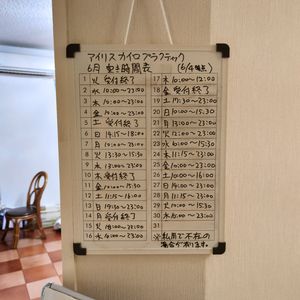 アイリスカイロプラクティック
6月 空き時間表 (6/4時点)
1 火 受付終了
2 水 10:00〜23:00
3 木 10:00〜23:00
4 金 10:00〜23:00
5 土 受付終了
6 日 14:15〜18:00
7 月 10:00〜23:00
8 火 13:30〜15:30
9 水 13:00〜23:00
10 木 受付終了
11 金 10:00〜15:30
12 土 11:15〜16:00
13 日 19:30〜23:00
14 月 受付終了
15 火 18:00〜22:00
16 水 9:00〜23:00
17 木 10:00〜12:00
18 金 受付終了
19 土 17:30〜23:00
20 日 10:00〜15:30
21 月 13:00〜23:00
22 火 12:00〜23:00
23 水 6:00〜15:30
24 木 11:15〜23:00
25 金 10:00〜23:00
26 土 10:00〜16:00
27 日 19:00〜23:00
28 月 11:15〜23:00
29 火 10:00〜15:30
30 水 10:00〜23:00
31
※私用で不在の
場合が有ります。